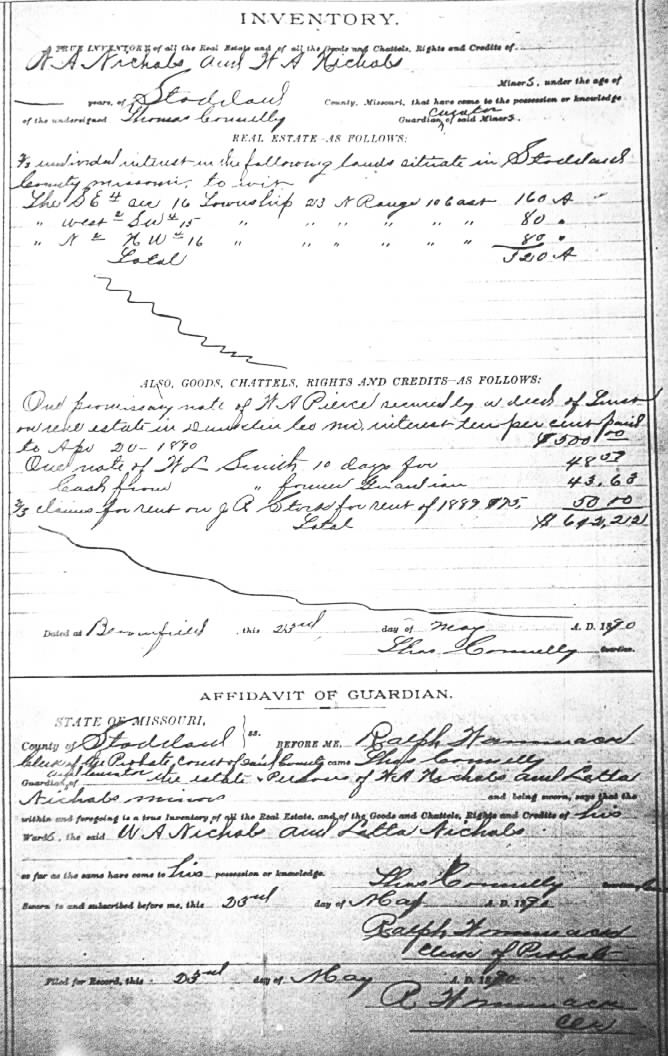 INVENTORY.
A TRUE INVENTORY of all the Real Estate and of all the Goods and Chattels, Rights and Credits of
W A Nichols and W A Nichols
Minors, under the age of
years, of Stoddard County, Missouri, that have come to the possession or knowledge
of the undersigned Thomas Connelly Guardian curator of said Minors.
REAL ESTATE AS FOLLOWS:
2/3 undivided interest in the following lands situate in Stoddard
County Missouri, to wit
The SE 4 sec 16 Township 23 N Range 10 East 160 A
" West 2 SW 4 15 " " " " " " 80 "
" N 2 NW 4 16 " " " " " " 80 "
Total 320 A
ALSO, GOODS, CHATTELS, RIGHTS AND CREDITS AS FOLLOWS:
One promissary note of W A Pierce secured by a deed of Trust
on real estate in Dunklin Co Mo, interest ten per cent paid
to Apr 20 - 1890 $500 00
One note of W L Smith 10 days for 48.59
Cash from " former Guardian 43.63
2/3 claims for rent on J R Stots for rent of 1889 $75, 50 00
Total $ 642,212
Dated at Bloomfield this 23rd day of May A. D. 1890
Thos Connelly Guardian.
AFFIDAVIT OF GUARDIAN.
STATE OF MISSOURI,
County of Stoddard ss. BEFORE ME, Ralph Wammack
Clerk of the Probate Court of said County came Thos Connelly
Guardian and Curator of the estate & Persons of W A Nichols and Letta
Nichols minors and being sworn, says that the
within and foregoing is a true Inventory of all the Real Estate, and of the Goods and Chattels, Rights and Credits of his
Wards, the said W A Nichols and Letta Nichols
as far as the same have come to his possession or knowledge.
Thos Connelly
Sworn to and subscribed before me, this 23rd day of May A. D. 1890
Ralph Wammack
Clerk of Probate
Filed for Record, this 23rd day of May A. D. 1890
R Wammack
Clk